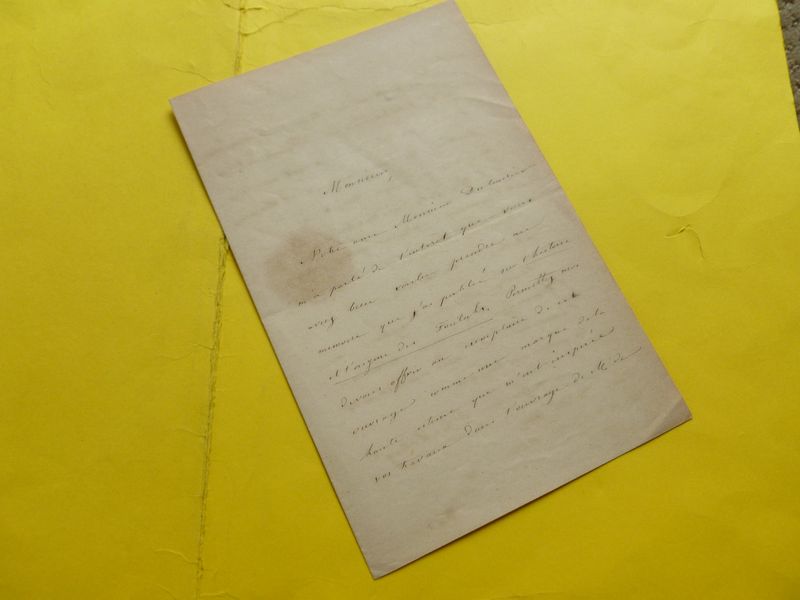 Monsieur,
Notre ami Monsieur
m'a parlé de l'interet que vous
avez bien voulu prendre au
memoire que j'ai publié sur l'histoire
et l'origine des Foulahs. Permettez moi
de vous offrir un exemplaire de cet
ouvrage comme une marque de la
haute estime que m'ont inspirée
vos travaux dans l'ouvrage de M. de